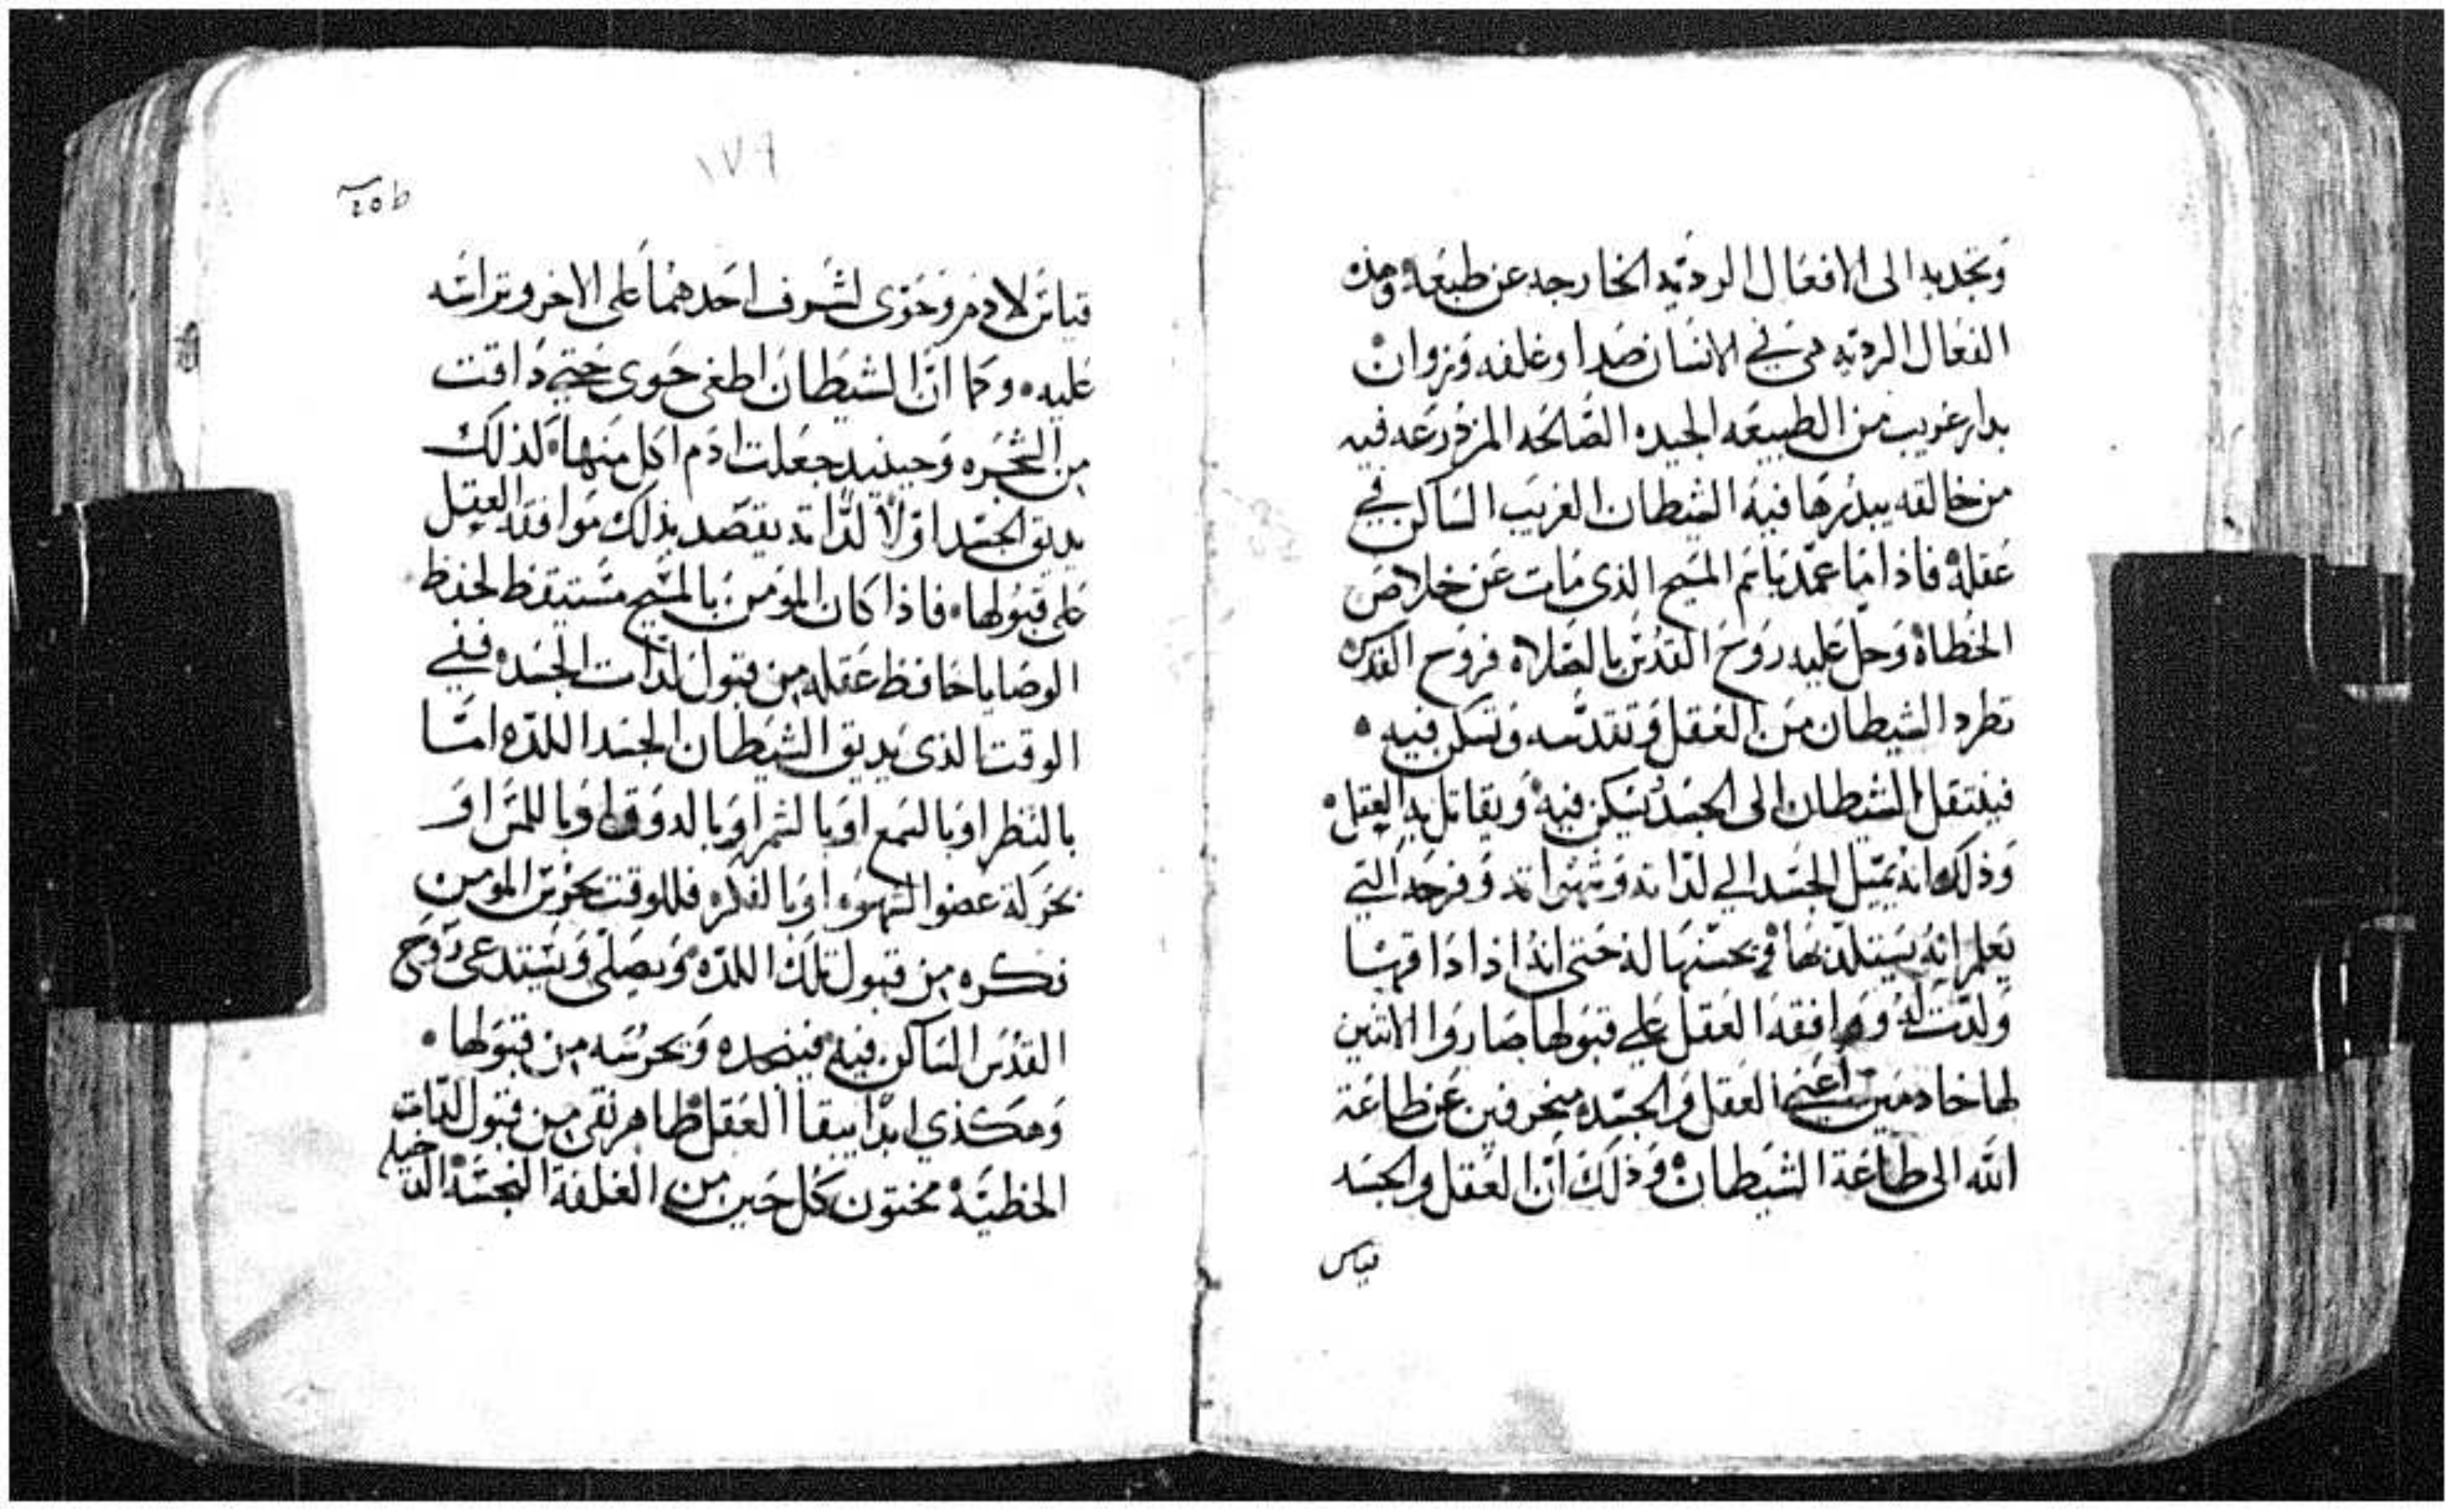 وتجذبه الى الافعال الرديه الخارجه عن طبعه وهذه
الفعال الرديه هي في الانسان صدا وغلفه وزوان
بدار غريب من الطبيعه الجيده الصالحه المزدرعه فيه
من خالقه يبدرها فيه الشطان الغريب الساكن في
عقله فاذا ما عمد باسم المسيح الذي مات عن خلاص
الخطاه وحل عليه روح القدس بالصلاه فروح القدس
تطرد الشيطان من العقل وتقدسه وتسكن فيه
فينتقل الشيطان الى الجسد يسكن فيه ويقاتل به العقل
وذلك انه يميل الجسد الي لداته وشهواته وفرجه التي
يعلم انه يستلد بها في يحسنها له حتى انه اذا داقها
ولدت له ووافقه العقل علي قبولها صاروا الاثنين
لها خادمين اعني العقل والجسد منحرفين عن طاعة
الله الى طاعة الشيطان وذلك ان العقل والجسد
قياس
١٧٩
قياس لادم وحوى لشرف احدهما على الاخر وتراسه
عليه وكما ان الشيطان اطغى حوى حتي داقت
من الشجره وحينيد جعلت ادم اكل منها لذلك
يديق الجسد اولا لداته يقصد بذلك موافقة العقل
على قبولها فاذا كان المومن بالمسيح مستيقظ لحفظ
الوصايا حافظ عقله من قبول لدات الجسد ففي
الوقت الذي يديق الشيطان الجسد اللده اما
بالنظر او بالسمع او بالشم او بالدوق او باللمس او
بحركة عضوا الشهوه او بالفكره فللوقت يحرس المومن
فكره من قبول تلك اللده ويصلي ويستدعى روح
القدس الساكن فيه فينجده ويحرسه من قبولها
وهكذي ابدا يبقا العقل طاهر نقى من قبول لدات
الخطيه مختون كل حين من الغلفة النجسة الدخيله